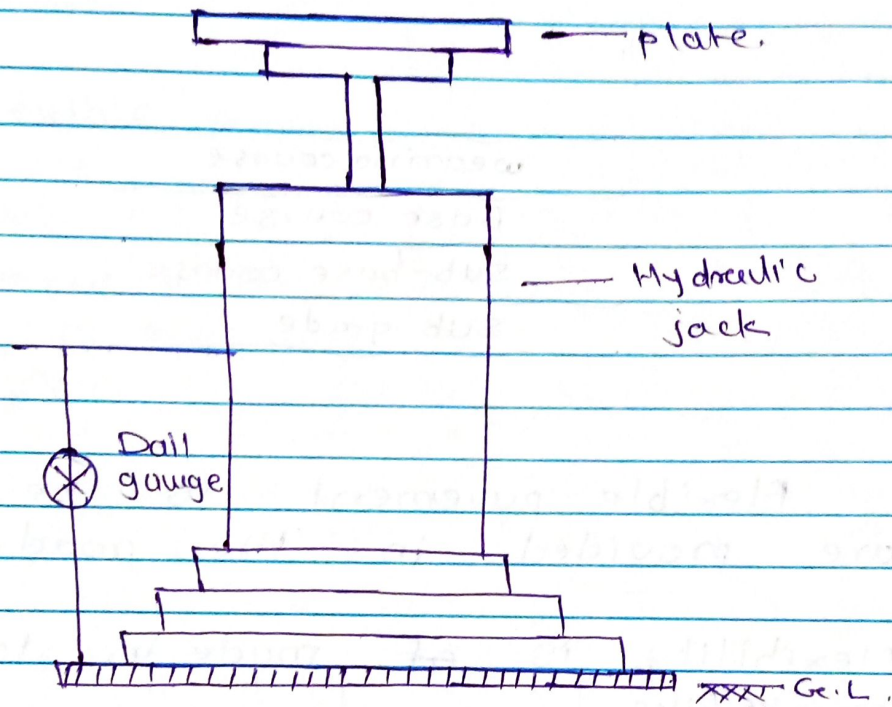 plate.
Hydraulic
jack
Dail
gauge
G.L.